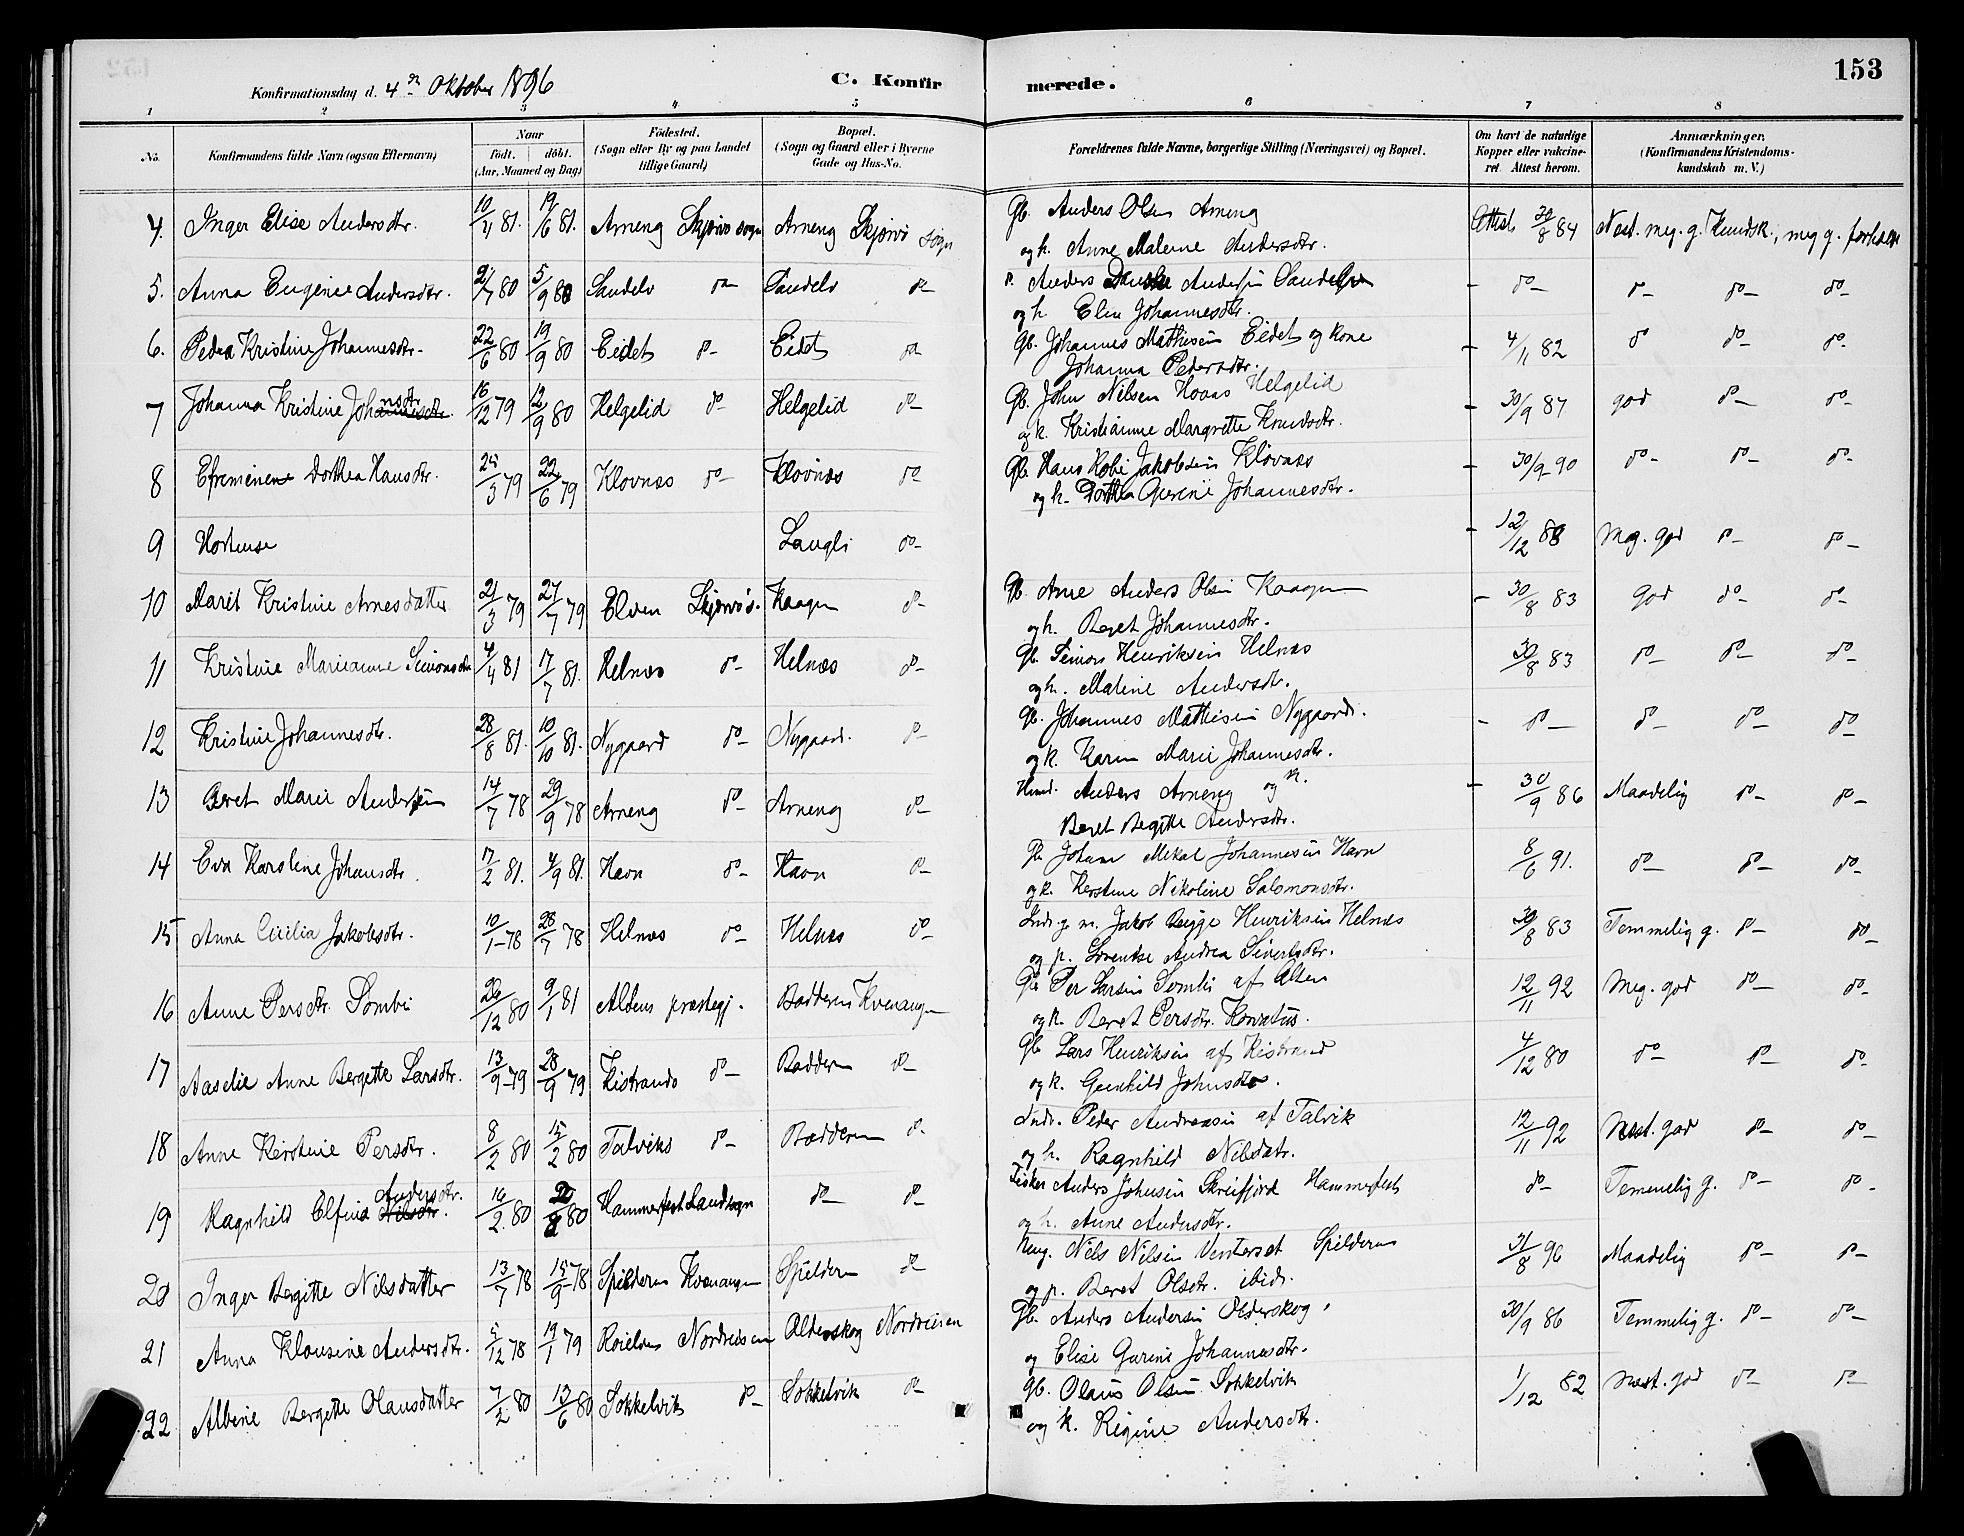 153
Konfirmationsdag d. 4de Oktober 1896
C. Konfirmerede.
1 2 3 4 5 6 7 8
No.
Konfirmandens fulde Navn (ogsaa Efternavn)
Naar
født. døbt.
(Aar, Maaned og Dag)
Fødested.
(Sogn eller By og paa Landet
tillige Gaard)
Bopæl.
(Sogn og Gaard eller i Byerne
Gade og Hus-No.
Forældrenes fulde Navne, borgerlige Stilling (Næringsvei) og Bopæl.
Om havt de naturlige
Kopper eller vakcineret
Attest herom.
Anmærkninger.
(Konfirmandens Kristendomskundskab
m. V.)
4. Inger Elise Andersdtr. 10/4 81. 19/6 81. Arneng Skjervø sogn Arneng Skjervø sogn Gb. Anders Olsen Arneng Attest 30/8 84 Mest. meg. g. Kundsk., meg g. forhold
og k. Anne Malene Andersdtr.
5. Anna Eugenie Andersdtr. 2/7 80 5/9 80 Sandelv do- Sandelv do- Anders Andersen Sandelven - do- do- do- do-
og k Elen Johannesdtr.
6. Pedra Kristine Johannesdtr. 22/6 80 19/9 80 Eidet do- Eidet do- Gb. Johannes Mathisen Eidet og kone - 4/11 82 do do- do-
Johanna Pedersdtr.
7 Johanna Kristine Johnsdtr. 16/12 79 12/9 80 Helgelid do- Helgelid do- Gb. John Nilsen Hovas Helgelid - 30/9 87 god do- do-
og k. Kristianne Margrette Knudsdtr.
8 Efremenene Dorthea Hansdtr. 25/3 79 22/6 79 Klovnæs do- Klovnæs do- Gb. Hans Kobi Jakobsen Klovnæs - 30/9 90 do- do- do-
og k. Dorthea Gurine Johannesdtr.
9 Hortense Laugli do- - 12/12 88 Meg. god do- do-
10 Marit Kristine Arnesdatter 21/3 79 27/7 79 Elven Skjervøs. Kaagen do- Gb. Arne Anders Olsen Kaagen - 30/8 83 god do- do-
og k. Beret Johannesdtr.
11 Kristine Marianne Simonsdtr 4/4 81 17/7 81. Helnæs do- Helnæs do- Gb. Simon Henriksen Helnæs 30/8 83 do- do- do-
og k. Maline Andersdtr.
12 Kristine Johannesdtr. 28/8 81. 10/10 81. Nygaard do- Nygaard. do- Gb. Johannes Mathisen Nygaard. - do- do- do- do-
og k. Karen Marie Johannesdtr.
13 Beret Marie Andersen 14/7 78 29/9 78 Arneng do- Arneng do- Anders Arneng og k. - 30/9 86 Maadelig do- do-
Beret Bergitte Andersdtr.
14 Eva Karoline Johansdtr. 17/2 81. 4/9 81. Havn do- Havn do- Gb Johan Mikal Johannesen Havn 8/6 91. do- do- do-
og k. Kerstine Nikoline Salomonsdtr.
15 Anna Cicilia Jakobsdtr. 10/1 78 28/7 78 Helnæs do- Helnæs do- Indr. g. m. Jakob Bigge Henriksen Helnæs 30/8 83 Temmelig g. do- do-
og p. Lorentse Andrea Sivertsdtr.
16 Anne Persdtr. Sombi 26/12 80 9/1 81 Altens præstegj. Badderen Kvenangen Gb Per Larsen Sombi af Alten 12/11 92 Meg. god do- do-
og k. Beret Persdtr.
17 Aaselie Anne Bergette Larsdtr. 13/9 79 28/9 79 Kistrands do- Badderen do- Gb Lars Henriksen af Kistrand 4/12 80 do- do- do-
og k. Gunhild Johnsdtr.
18 Anne Kerstine Persdtr. 8/2 80 15/2 80 Talviks do- Badderen do- Indr. Peder Andreasen af Talvik 12/11 92 Mest. god do- do-
og k. Ragnhild Nilsdtr.
19 Ragnhild Elfina Andersdtr. Nilsdtr. 16/2 80 80 Hammerfest Landsogn do- do- Fisker Anders Johnsen Skreifjord Hammerfest do- Temmelig g. do- do-
og k. Anne Andersdtr.
20 Inger Bergitte Nilsdatter 13/7 78 15/9 78 Spilderen Kvenangen Spilderen do- Ung. Nils Nilsen Spilderen 31/8 96 Maadelig do- do-
og p. Beret Olsdtr. ibid.
21 Anna Klausine Andersdtr. 5/12 78 19/1 79 Nordreisen Olderskog Nordreisen Gb. Anders Andersen Olderskog 30/9 86 Temmelig g. do- do-
og Elise Gurine Johannesdtr.
22. Albine Bergette Olausdatter 7/2 80 13/6 80 Sokkelvik do- Sokkelvik do- Gb. Olaus Olsen Sokkelvik 1/12 82 Mest. god do- do-
og k. Regine Andersdtr.